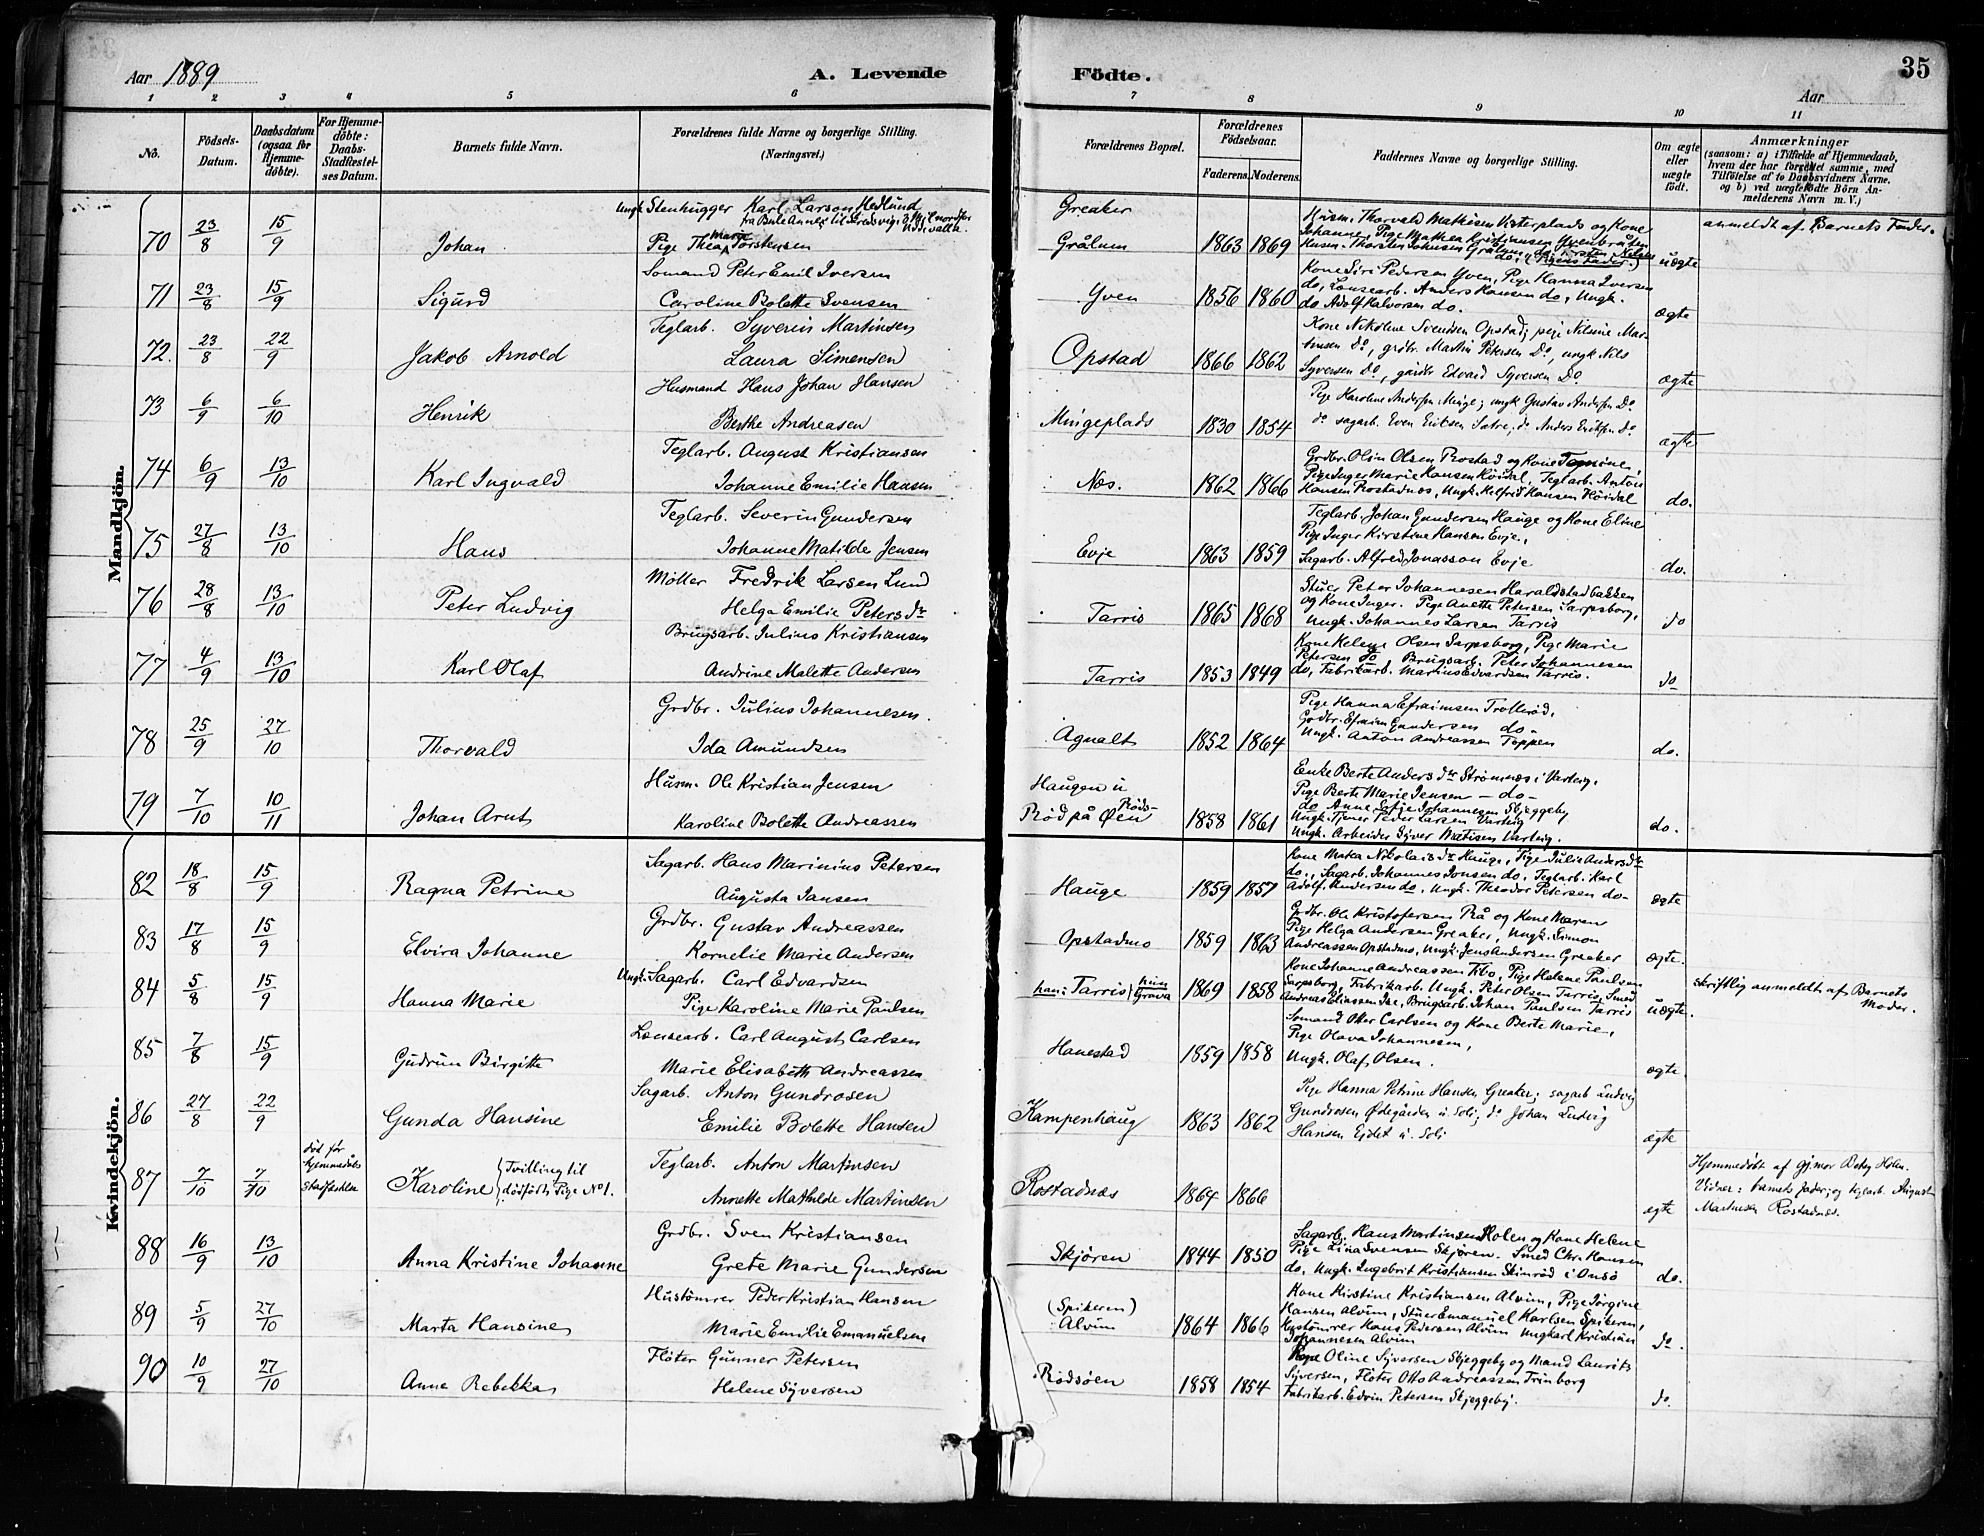 Aar 1889
A. Levende Födte.
Aar
35
1 2 3 4 5 6 7 8 9 10 11
No.
Födsels-Datum.
Daabsdatum (ogsaa for Hjemme-döbte).
For Hjemme-döbte: Daabs-Stadfæstel-ses Datum.
Barnets fulde Navn.
Forældrenes fulde Navne og borgerlige Stilling. (Næringsvei.)
Forældrenes Bopæl.
Forældrenes Födselsaar.
Faderens. Moderens.
Faddernes Navne og borgerlige Stilling.
Om ægte eller uægte födt.
Anmærkninger
(saasom: a) i Tilfælde af Hjemmedaab, hvem der har forrettet samme, med Tilföielse af to Daabsvidners Navne, og b) ved uægtefödte Börn An-melderens Navn m. V.)
Mandkjön.
70 23/8 15/9 Johan
Ungk. Stenhugger Karl Larson Hedlund
Pige Thea Marie Torstensen
Greaker
Grålum 1863 1869
Johanne, Pige Mathea Kristiansen Yvenbråten
uægte
anmeldt af Barnets Fader.
71 23/8 15/9 Sigurd
Sømand Peter Emil Iversen
Caroline Bolette Svensen
Yven 1856 1860
Kone Siri Pedersen Yven, Pige Hanna Iversen
do, Lænsearb. Anders Hansen do, Ungk.
do Adolf Halvorsen do.
ægte
72. 23/8 22/9 Jakob Arnold
Teglarb. Syverin Martinsen
Laura Simensen
Opstad 1866 1862
Kone Nikoline Svendsen Opstad; pige Nilsine Mar-
tinsen Do, grdbr. Martin Petersen Do, ungk Nils
Syversen Do, gardbr Edvard Syversen Do
ægte
73 6/9 6/10 Henrik
Husmand Hans Johan Hansen
Berthe Andreasen
Mingeplads 1830 1854
Pige Karoline Andersen Minge; ungk Gustav Andersen Do
do sagarb. Even Eriksen Sætre; do Anders Eriksen Do
ægte
74 6/9 13/10 Karl Ingvald
Teglarb. August Kristiansen
Johanne Emilie Hansen
Næs. 1862 1866
Grdbr. Olin Olsen Rostad og Kone Tomine,
Pige Inger Marie Hansen Höidal, Teglarb. Anton
Hansen Rostadnæs, Ungk. Helfred Hansen Höidal
do.
75 27/8 13/10 Hans
Teglarb. Severin Gundersen
Johanne Matilde Jensen
Evje 1863 1859
Teglarb. Johan Gundersen Hauge og Kone Eline
Pige Inger Kirstine Hansen Evje,
Sagarb. Alfred Jonasson Evje
do.
76 28/8 13/10 Peter Ludvig
Møller Fredrik Larsen Lund
Helga Emilie Petersdr
Tarris 1865 1868
Stuer Peter Johannesen Haraldstadbakken
og Kone Inger. Pige Anette Petersen Sarpsborg,
Ungk. Johannes Larsen Tarris
do
77 4/9 13/10 Karl Olaf
Brugsarb. Julius Kristiansen
Andrine Malette Andersen
Tarris 1853 1849
Kone Helene Olsen Sarpsborg, Pige Marie
Petersen do Brugsarb. Peter Johannesen
do, Fabrikarb. Martinus Edvardsen Tarris.
do
78 25/9 27/10 Thorvald
Grdbr. Julius Johannesen.
Ida Amundsen
Agnalt 1852 1864
Pige Hanna Efraimsen Trollerød,
Grdbr. Efraim Gundersen do-
Ungk. Anton Andreassen Toppen
do.
79 7/10 10/11 Johan Arnt
Husm. Ole Kristian Jensen
Karoline Bolette Andreassen
Haugen u
Rød på Øen 1858 1861
Enke Berte Andersdr Strømnes i Varteig,
Pige Berte Marie Jensen - do-
do Anne Sofie Johannesen Skjeggeby
Ungk. Tjener Peder Larsen Varteig
Ungk. Arbeider Syver Matisen Varteig.
do.
Kvindekjön.
82 18/8 15/9 Ragna Petrine
Sagarb. Hans Marinius Petersen
Augusta Jansen
Hauge 1859 1857
Kone Matea Nikolaisdr Hauge, Pige Julie Andersdr
do., Sagarb. Johannes Jonsen do, Teglarb. Karl
Adolf Andersen do, Ungk. Theodor Petersen do-
ægte
83 17/8 15/9 Elvira Johanne
Grdbr. Gustav Andreassen
Kornelie Marie Andersen
Opstadmo 1859 1863
Grdbr. Ole Kristofersen Rå og Kone Maren
Pige Helga Andersen Greaker, Ungk. Simon
Andreassen Opstadmo, Ungk. Jens Andersen Greaker
ægte.
84 5/8 15/9 Hanna Marie
Ungk. Sagarb. Carl Edvardsen
Pige Karoline Marie Paulsen
han: Tarris hun Grava 1869 1858
Kone Johanne Andreassen Tibo, Pige Helene Paulsen
Sarpsborg, Fabrikarb. Ungk. Peter Olsen Tarris, Smed
Andreas Eliassen Ise, Brugsarb. Johan Paulsen Tarris
uægte.
skriftlig anmeldt af Barnets
Moder.
85 7/8 15/9 Gudrun Birgitte
Lænsearb. Carl August Carlsen
Marie Elisabeth Andreassen
Hanestad 1859 1858
Sømand Otter Carlsen og Kone Berte Marie,
Pige Olava Johannesen,
Ungk. Olaf Olsen.
ægte.
86 27/8 22/9 Gunda Hansine
Sagarb. Anton Gundrosen
Emilie Bolette Hansen
Kampenhaug 1863 1862
Pige Hanna Petrine Hansen Greaker; sagarb Ludvig
Gundrosen Ødegården u. Soli; do Johan Ludvig
Hansen Eidet u. Soli
ægte
87 7/10 7/10
død før
hjemmedåbs
stadfæstelse
Karoline {Tvilling til
dødfødt Pige No 1.
Teglarb. Anton Martinsen
Annette Mathilde Martinsen
Rostadnæs 1864 1866
ægte
Hjemmedøbt af gj.mor Betsy Holen.
Vidner: barnets fader; og teglarb. August
Martinsen Rostadnæs.
88 16/9 13/10 Anna Kristine Johanne
Grdbr. Sven Kristiansen
Grete Marie Gundersen
Skjøren 1844 1850
Sagarb. Hans Martinsen Holen og Kone Helene
Pige Lina Svensen Skjøren. Smed Chr. Hansen
do, Ungk. Ingebrit Kristiansen Skinrød i Onsø
do.
89 5/9 27/10 Marta Hansine
Hustømrer Peder Kristian Hansen
Marie Emilie Emanuelsen
(Spikeren)
Alvim 1864 1866
Kone Kirstine Kristiansen Alvim, Pige Jørgine
Hansen Alvim, Stuer Emanuel Karlsen Spikeren,
Hustømrer Hans Pedersen Alvim Ungkarl Kristian
Johannesen Alvim
do.
90 10/9 27/10 Anne Rebekka
Fløter Gunner Petersen
Helene Syversen
Rødsøen 1858 1854
Pige Oline Syversen Skjeggeby og Mand Laurits
Syversen, Fløter Otto Andreassen Trinborg
Fabrikarb. Edvin Petersen Skjeggeby.
do.